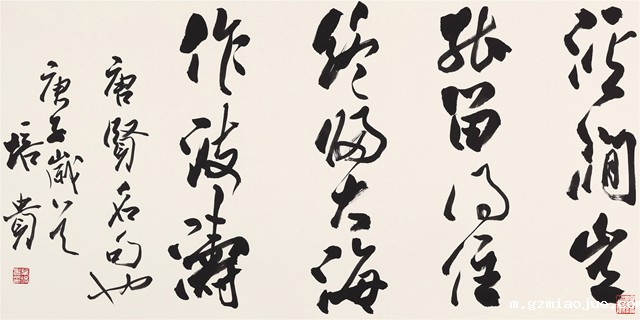 溪澗豈
能留得住
終歸大海
作波濤
唐賢名句也
庚子歲
培貴
m.gzmiaojue.com